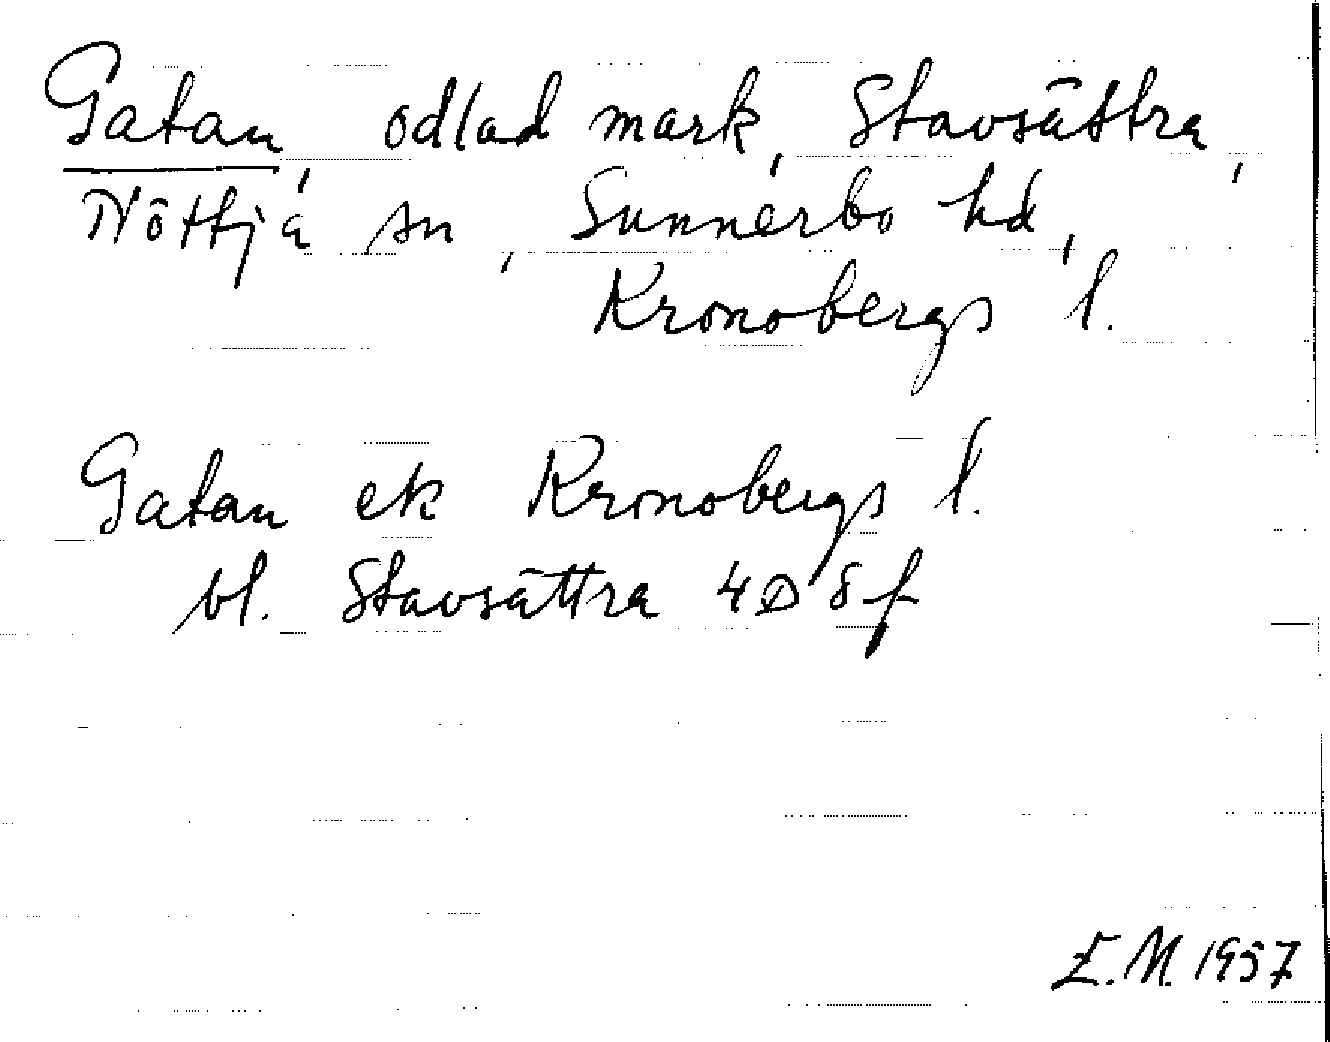 Gatan, odlad mark, Stavsättra,
Nöttja sn, Sunnerbo hd,
Kronobergs l.
Gatan ek Kronobergs l.
bl. Stavsättra 4D8f
E.M. 1957